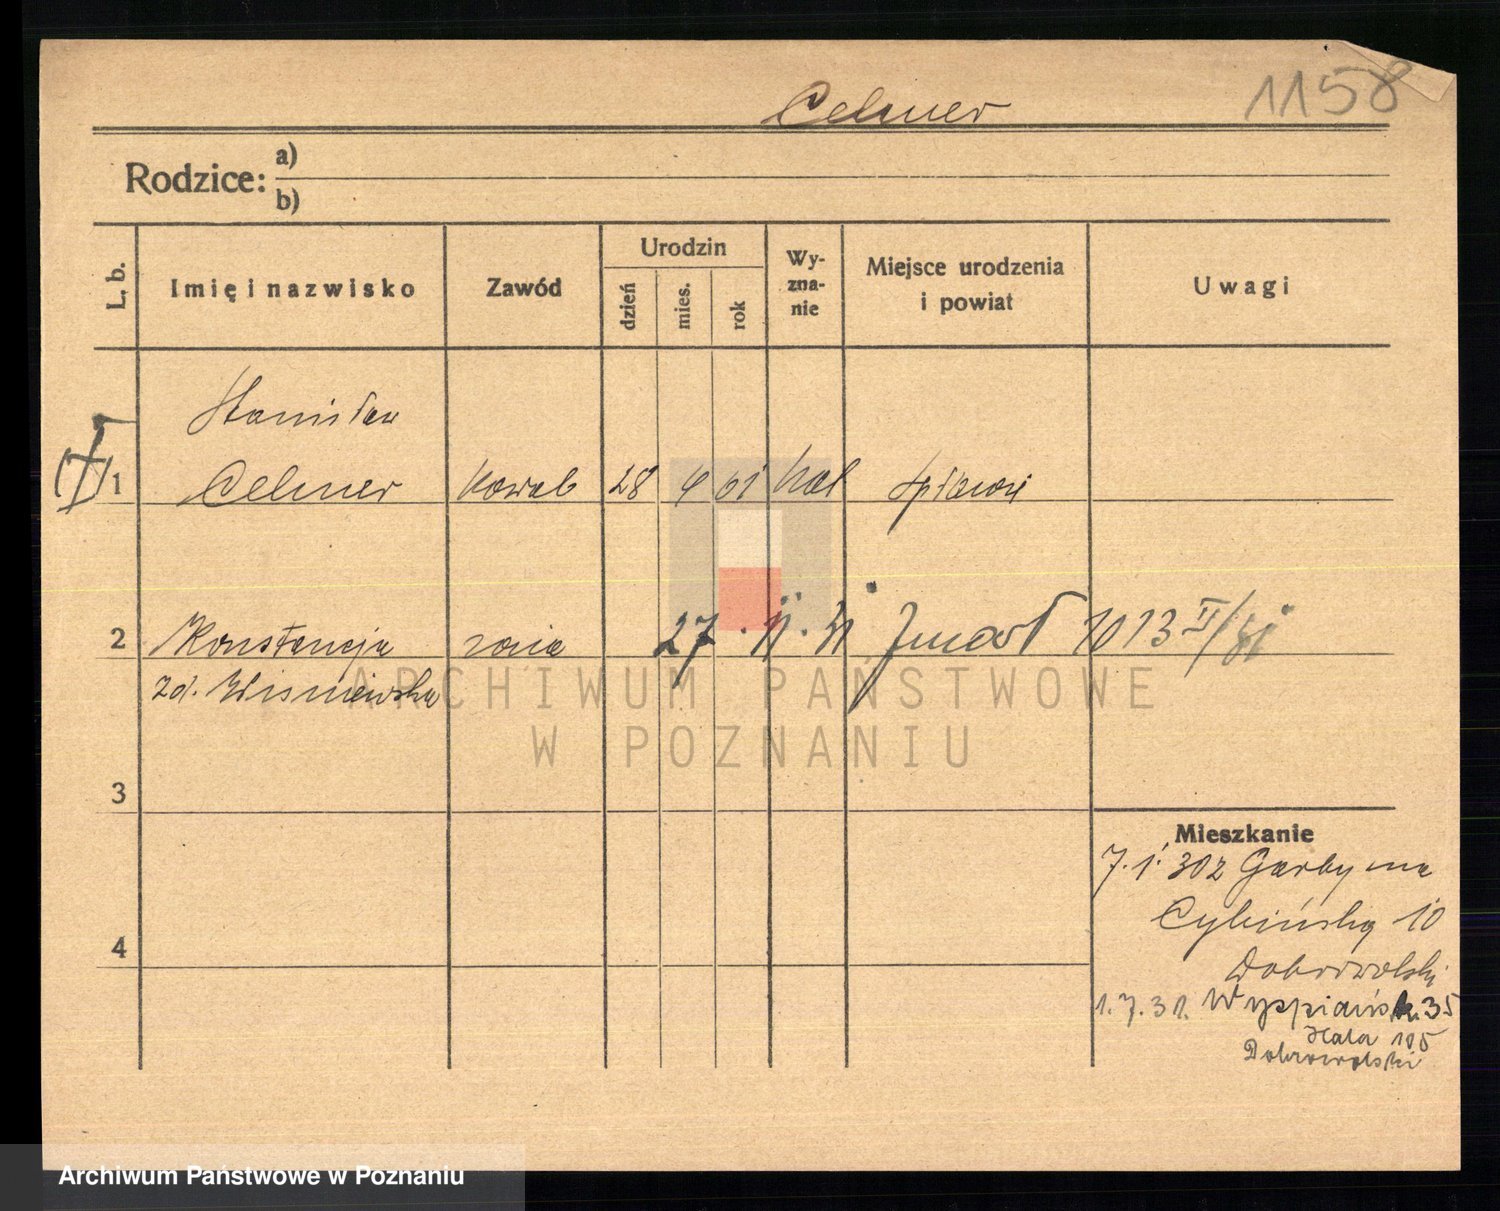 Celmer 1158
Rodzice: a)
b)
L. b.
Imię i nazwisko
Zawód
Urodzin
dzień
mies.
rok
Wy-
zna-
nie
Miejsce urodzenia
i powiat
Uwagi
Stanisław
1 Celmer kowal 28 4 61 kat Spławie
2 Konstancja żona 27. II. 31 Zmarł 1013 II/31
zd. Wiśniewska
3
4
Mieszkanie
7.1.30 z Garby na
Cybińską 10
Dobrowolski
1.7.31. Wyspiańsk. 35
Hala 105
Dobrowolski
ARCHIWUM PAŃSTWOWE
W POZNANIU
Archiwum Państwowe w Poznaniu